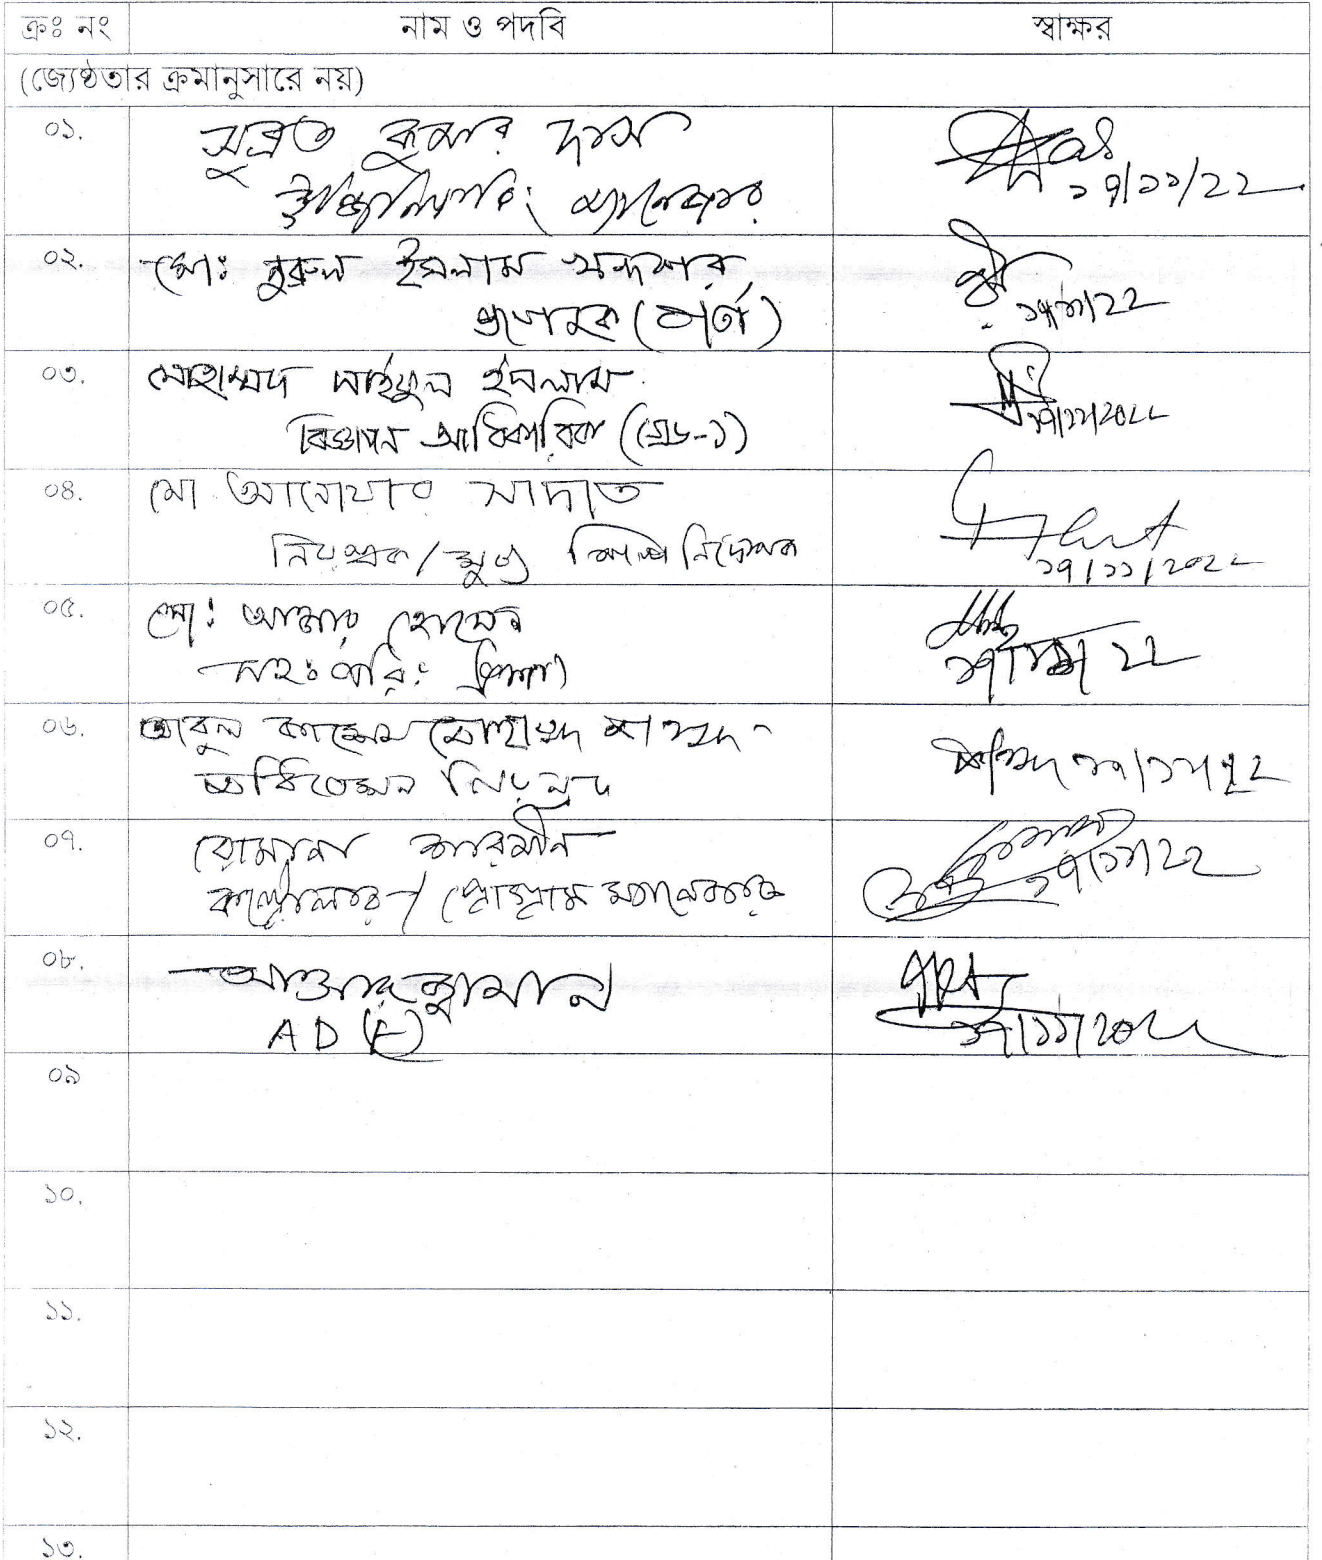 ক্রঃ নং নাম ও পদবি স্বাক্ষর
(জ্যেষ্ঠতার ক্রমানুসারে নয়)
০১. সুব্রত কুমার দাস
ইঞ্জিনিয়ারিং ম্যানেজার
Das ১৭/১১/২২
০২. মোঃ নুরুল ইসলাম খন্দকার
প্রযোজক (বার্তা)
১৭/১১/২২
০৩. মোহাম্মদ সাইফুল ইসলাম
বিজ্ঞাপন আধিকারিক (গ্রেড-১)
১৭/১১/২০২২
০৪. মো আনোয়ার সাদাত
নিয়ন্ত্রক/মুখ্য শিল্প নির্দেশক
১৭/১১/২০২২
০৫. মো: আক্তার হোসেন
সহঃ পরিঃ
১৭/১১/২২
০৬. আবুল কাসেম মোহাম্মদ
নিয়ন্ত্রক
১৭/১১/২২
০৭. রোমানা শারমীন
কন্ট্রোলার/প্রোগ্রাম ম্যানেজার
১৭/১১/২২
০৮. আক্তারুজ্জামান
AD (F)
১৭/১১/২০২২
০৯
১০.
১১.
১২.
১৩.